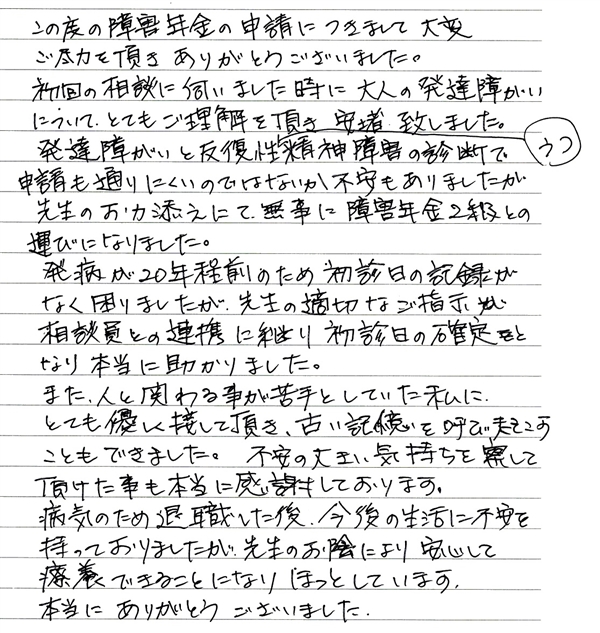 この度の障害年金の申請につきまして大変
ご尽力を頂きありがとうございました。
初回の相談に伺いました時に大人の発達障がい
について、とてもご理解を頂き安堵致しました。
発達障がいと反復性精神障害の診断で
うつ
申請も通りにくいのではないか不安もありましたが
先生のお力添えにて無事に障害年金2級との
運びになりました。
発病が20年程前のため初診日の記録が
なく困りましたが、先生の適切なご指示
相談員との連携に 初診日の確定と
なり本当に助かりました。
また、人と関わる事が苦手としていた私に、
とても優しく接して頂き、古い記憶を呼び起こす
こともできました。不安の大きい気持ちを察して
頂けた事も本当に感謝しております。
病気のため退職した後、今後の生活に不安を
持っておりましたが、先生のお陰により安心して
療養できることになりほっとしています。
本当にありがとうございました。